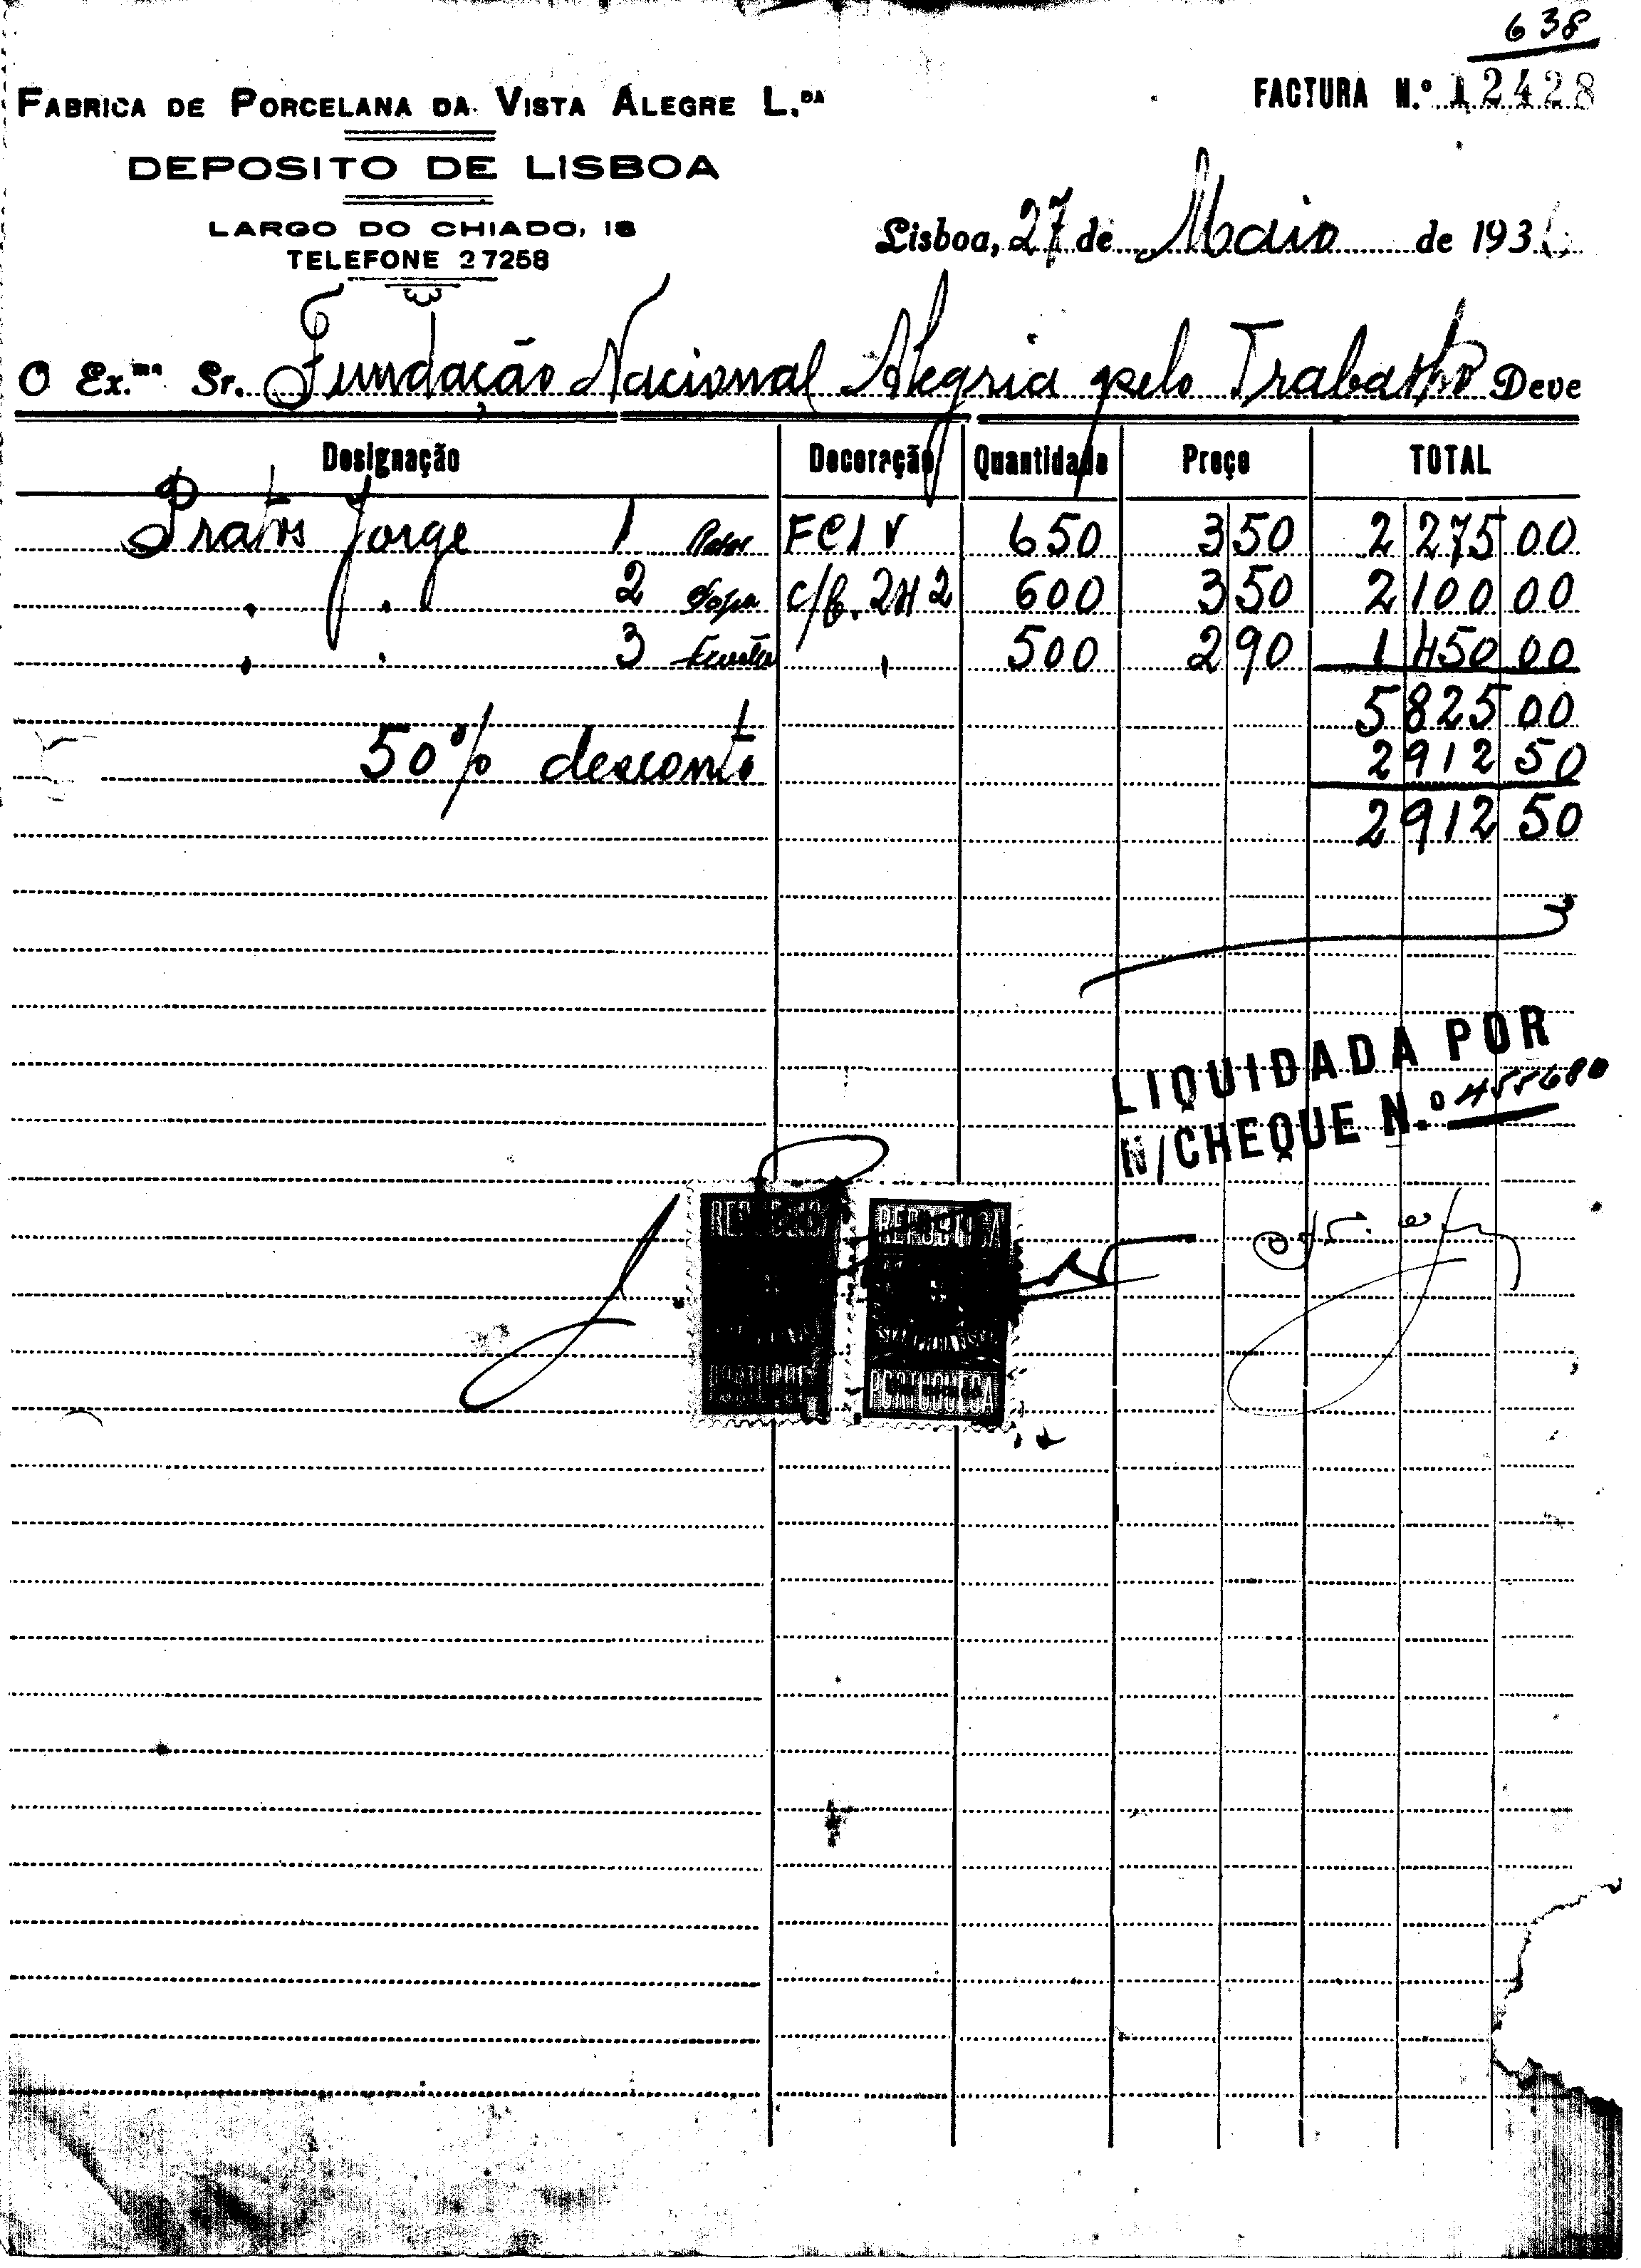 638
FABRICA DE PORCELANA DA VISTA ALEGRE L.DA
FACTURA N.º 12428
DEPOSITO DE LISBOA
LARGO DO CHIADO, 18
TELEFONE 27258
Lisboa, 27 de Maio de 193
O Ex.mo Sr. Fundação Nacional Alegria pelo Trabalho Deve
Designação Decoração Quantidade Preço TOTAL
Pratos Jorge 1 FC1V 650 3 50 2 275 00
" " 2 Sopa c/f. 242 600 3 50 2 100 00
" " 3 " 500 2 90 1 450 00
5 825 00
50% desconto 2 912 50
2 912 50
LIQUIDADA POR
N/CHEQUE N.º 455680
REPUBLICA REPUBLICA
ESTAMPILHA FISCAL
PORTUGUESA PORTUGUESA